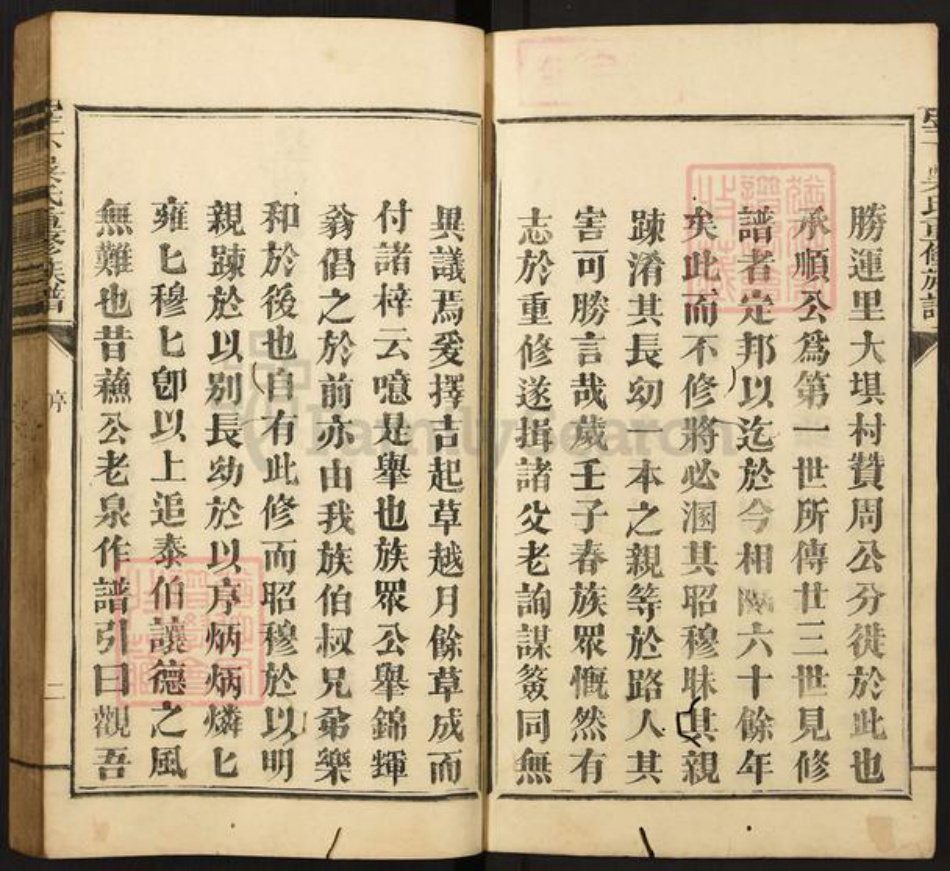 勝運里大埧村贊周公分徙於此也
承順公爲第一世所傳廿三世見修
譜者定邦以迄於今相隔六十餘年
矣此而不修將必溷其昭穆昧其親
踈淆其長幼一本之親等於路人其
害可勝言哉歲壬子春族眾慨然有
志於重修遂揖諸父老詢謀僉同無
異議焉爰擇吉起草越月餘草成而
付諸梓云噫是舉也族眾公舉錦輝
翁倡之於前亦由我族伯叔兄弟樂
和於後也自有此修而昭穆於以明
親踈於以别長幼於以序炳炳燐匕
雍匕穆匕卽以上追泰伯讓德之風
無難也昔蘓公老泉作譜引曰觀吾
序
二
FamilySearch